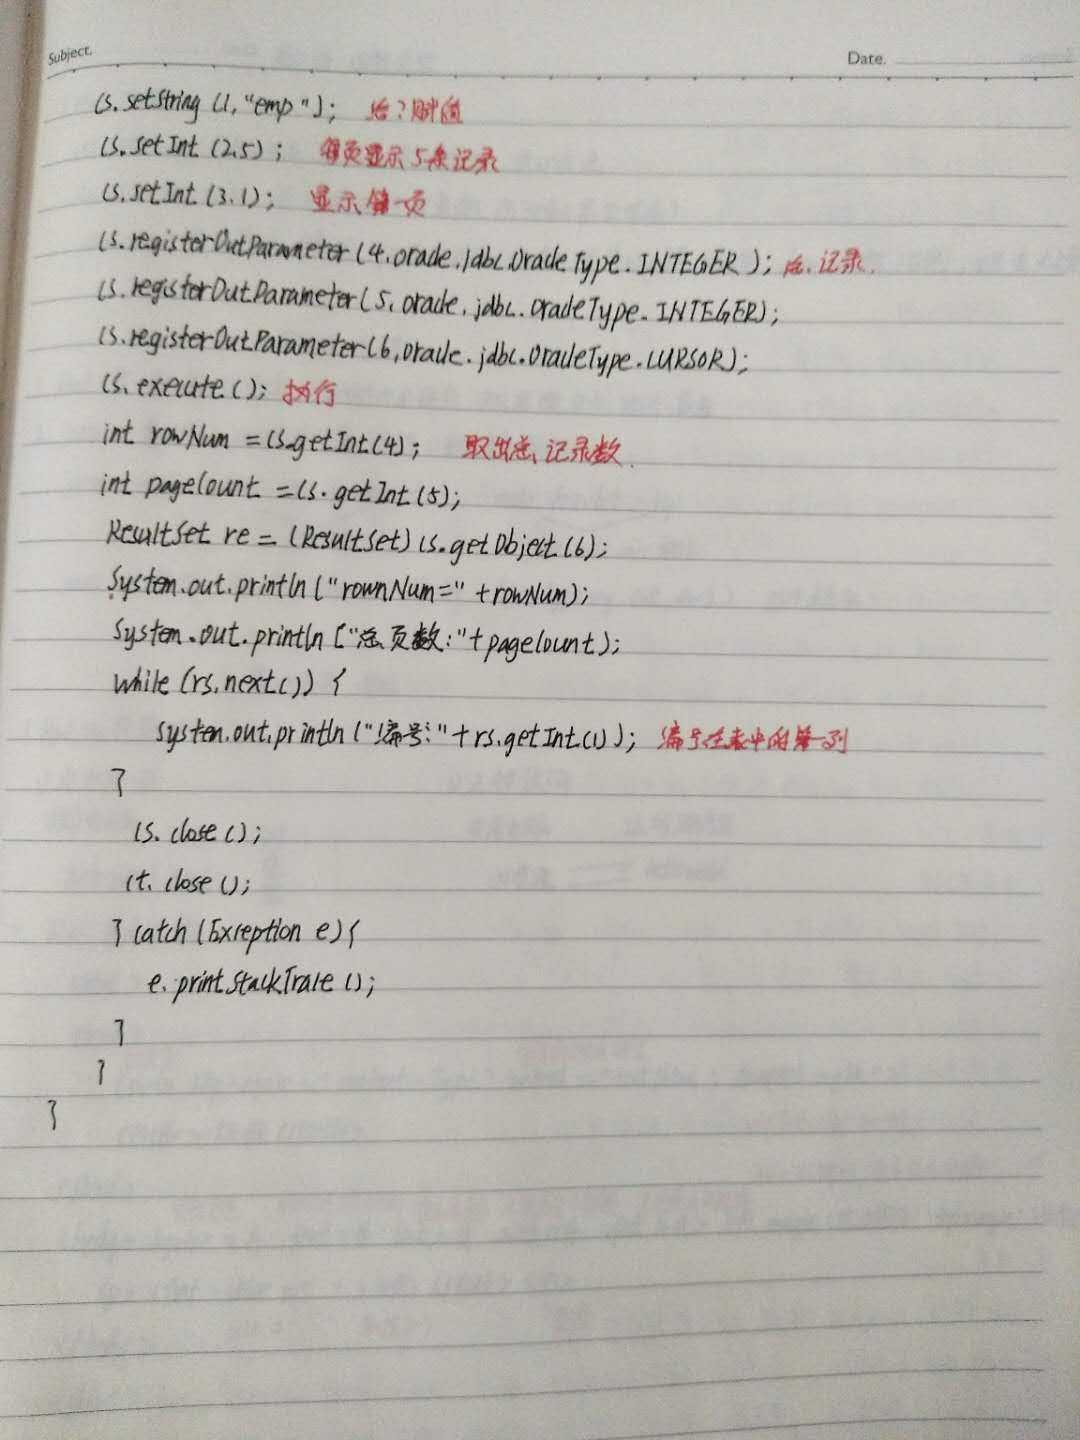 Subject.
Date.
cs.setString (1, "emp"); 给?赋值
cs.setInt (2,5); 每页显示5条记录
cs.setInt (3,1); 显示第一页
cs.registerOutParameter (4, oracle.jdbc.OracleType.INTEGER); 总记录.
cs.registerOutParameter (5, oracle.jdbc.OracleType.INTEGER);
cs.registerOutParameter (6, oracle.jdbc.OracleType.CURSOR);
cs.execute (); 执行
int rowNum = cs.getInt(4); 取出总记录数.
int pageCount = cs.getInt (5);
ResultSet re = (ResultSet) cs.getObject (6);
System.out.println ("rownNum=" +rowNum);
System.out.println ["总页数:"+pageCount);
while (rs.next()) {
System.out.println ("编号:"+rs.getInt(1)); 编号在表中的第一列
}
cs.close ();
ct.close ();
} catch (Exception e) {
e.printStackTrace ();
}
}
}